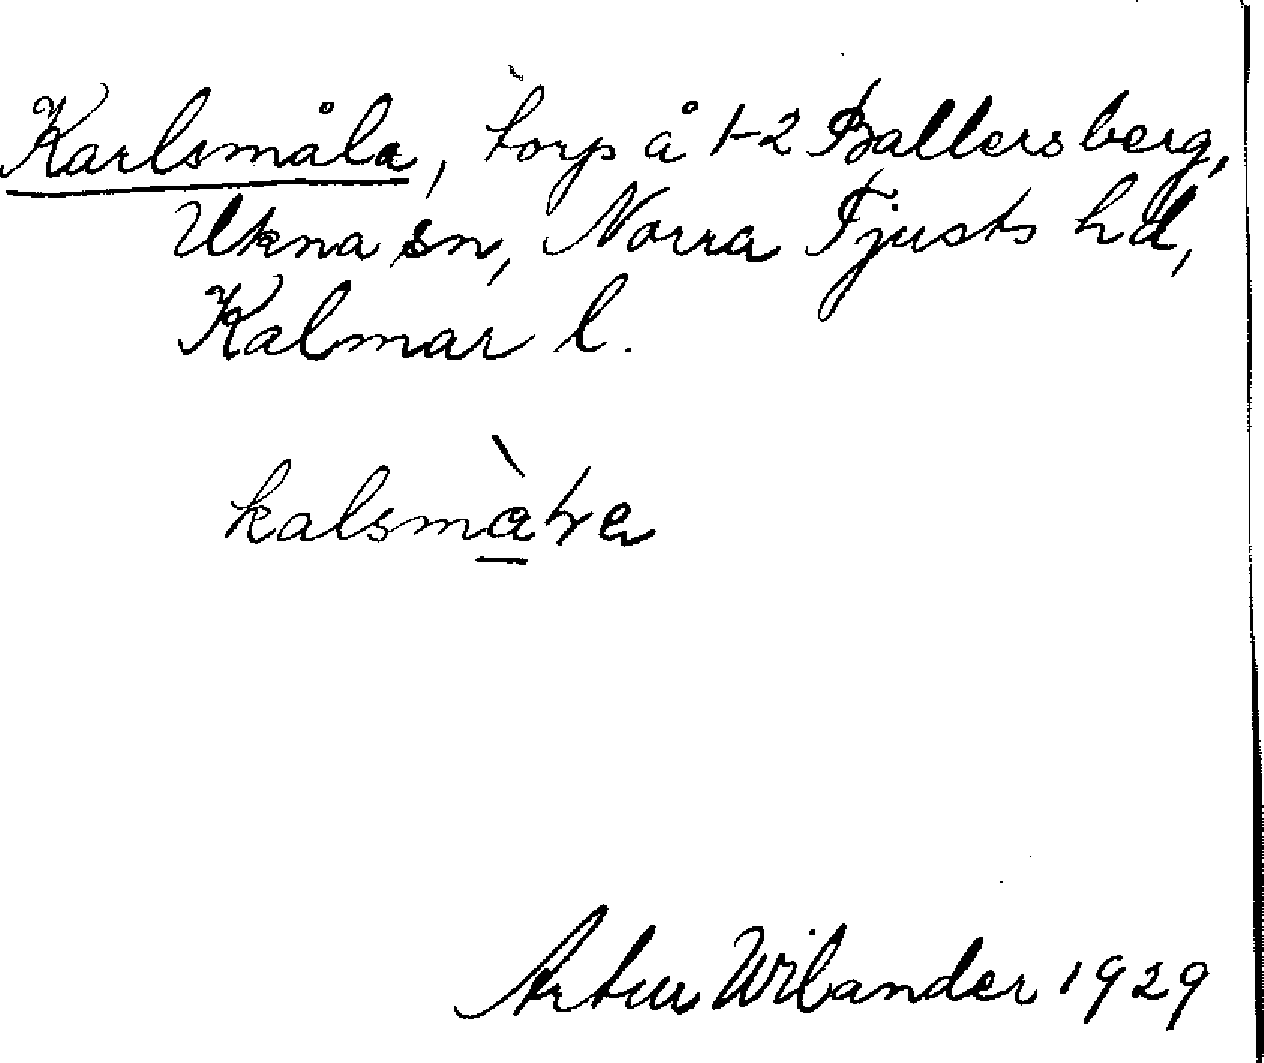 Karlsmåla, torp å 1-2 Ballersberg,
Ukna sn, Norra Tjusts hd,
Kalmar l.
Artur Wilander 1929